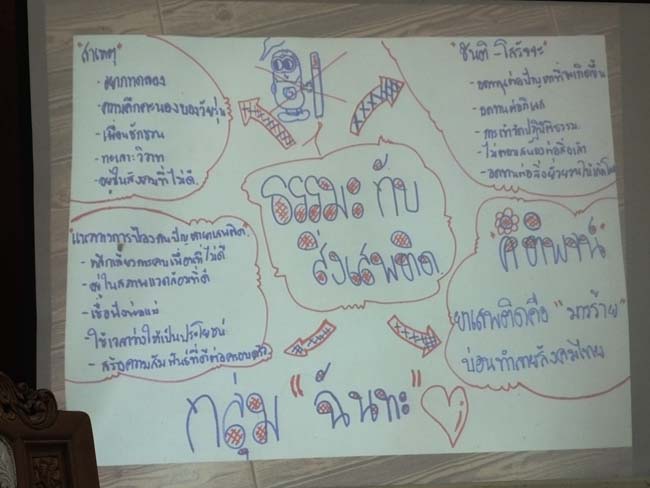 "สาเหตุ"
- อยากทดลอง
- ความคึกคะนองของวัยรุ่น
- เพื่อนชักชวน
- ทะเลาะวิวาท
- อยู่ในสังคมที่ไม่ดี
"ขันติ - โสรัจจะ
- อดทนต่อปัญหาที่จะเกิดขึ้น
- อดทนต่อกิเลส
- ไม่ตอบสนองต่อสิ่งเร้า
- อดทนต่อสิ่งยั่วยวน
ธรรมะ กับ
สิ่งเสพติด
แนวทางการป้องกันปัญหายาเสพติด
- หลีกเลี่ยงการคบเพื่อนที่ไม่ดี
- อยู่ในสภาพแวดล้อมที่ดี
- เชื่อฟังพ่อแม่
- ใช้เวลาว่างให้เป็นประโยชน์
- สร้างความสัมพันธ์ที่ดีต่อครอบครัว
"คำพจน์"
ยาเสพติดคือ "มารร้าย"
บ่อนทำลายสังคมไทย
กลุ่ม "ฉันทะ"